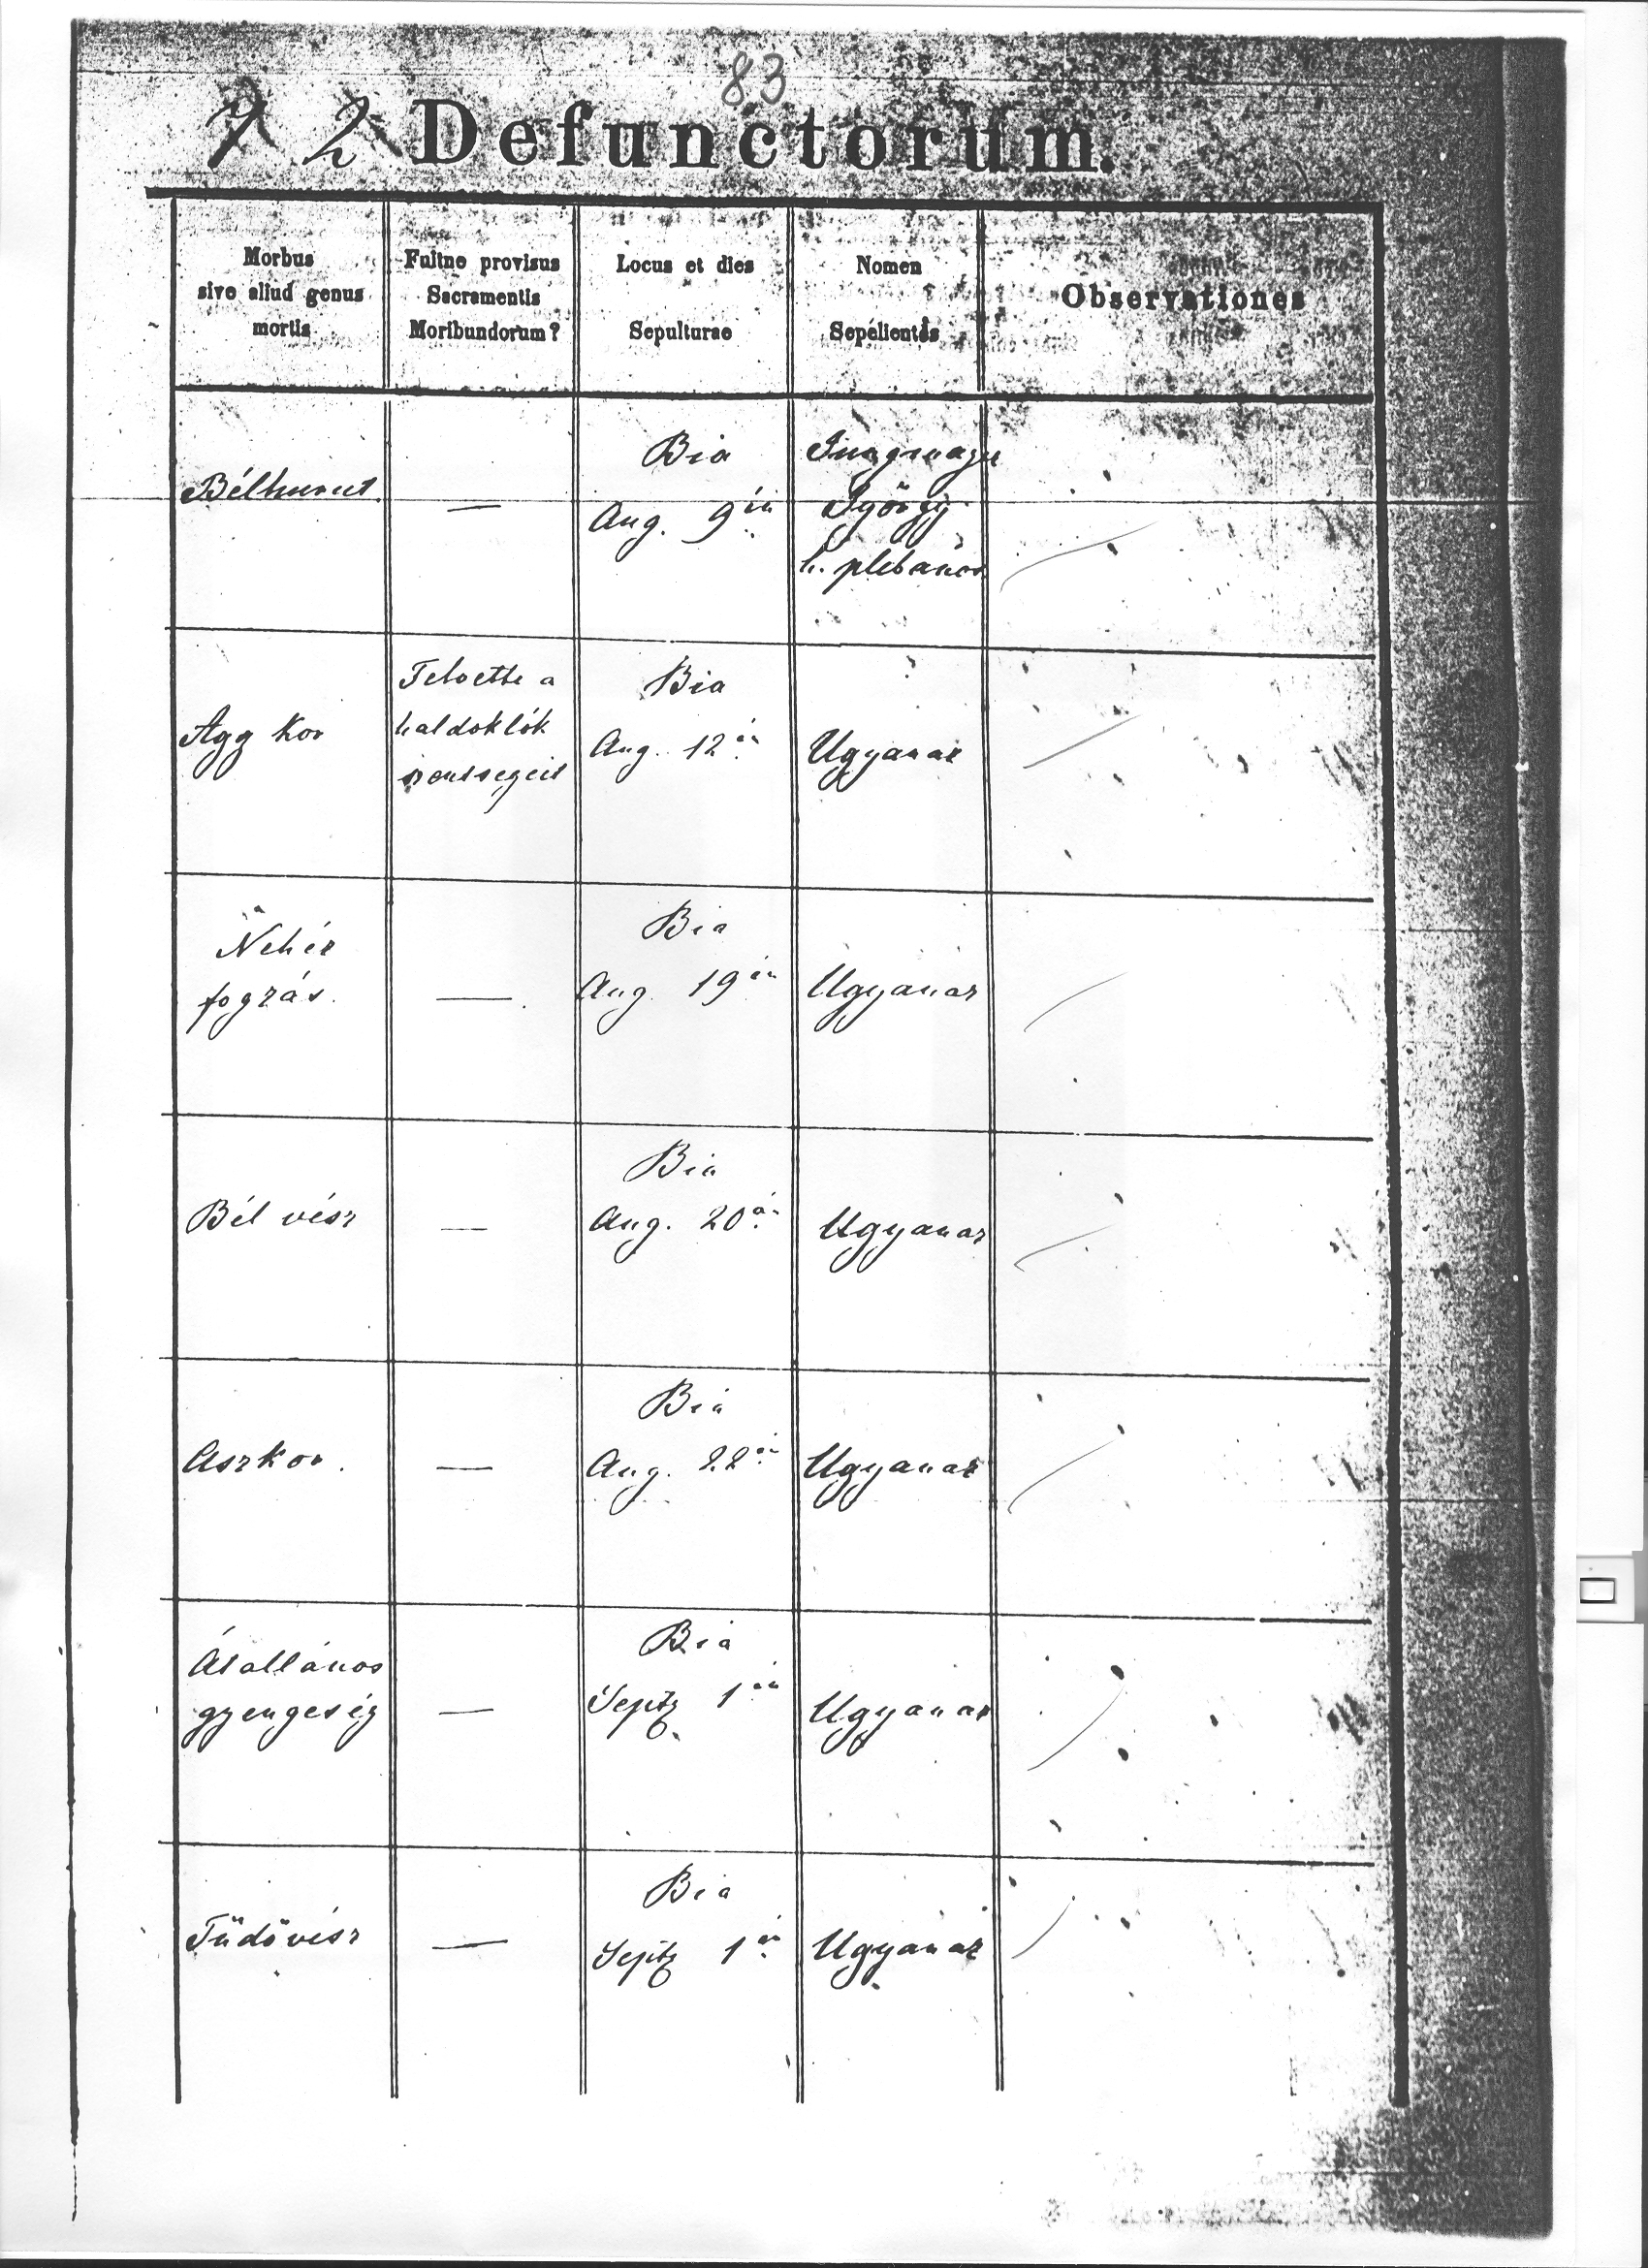 83
72 Defunctorum.
Morbus
sive aliud genus
mortis
Fuitne provisus
Sacramentis
Moribundorum?
Locus et dies
Sepulturae
Nomen
Sepelientis
Observationes
Bélhurut
—
Bia
Aug. 9én
György
h. plebános
Agg kor
Felvette a
haldoklók
szentségeit
Bia
Aug. 12én
Ugyanaz
Nehéz
fogzás.
—
Bia
Aug. 19én
Ugyanaz
Bél vész
—
Bia
Aug. 20án
Ugyanaz
Aszkor.
—
Bia
Aug. 22én
Ugyanaz
Átallános
gyengeség
—
Bia
Septz 1én
Ugyanaz
Tüdővész
—
Bia
Septz 1én
Ugyanaz